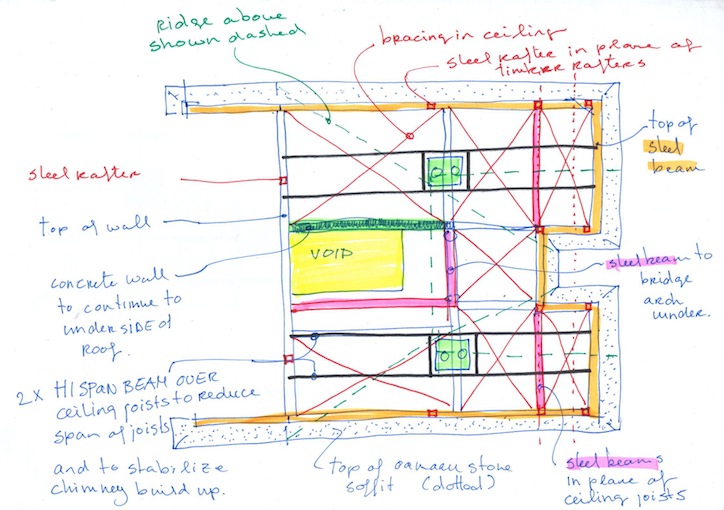 Ridge above
shown dashed
bracing in ceiling
steel rafter in plane of
timber rafters
top of
steel
beam
steel rafter
top of wall
VOID
concrete wall
to continue to
underSIDE of
Roof.
steel beam to
bridge
arch
under.
2x HISPAN BEAM OVER
ceiling joists to reduce
span of joists
and to stabilize
chimney build up.
top of oamaru stone
soffit (dotted)
steel beams
in plane of
ceiling joists